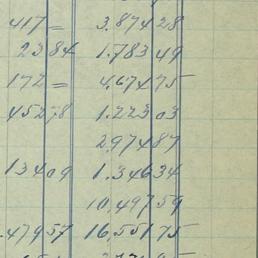 417 = 3.874 28
23 84 1.783 49
172 = 4.674 75
452 78 1.223 03
297 487
134 09 1.346 34
10.497 59
479 57 16.551 75